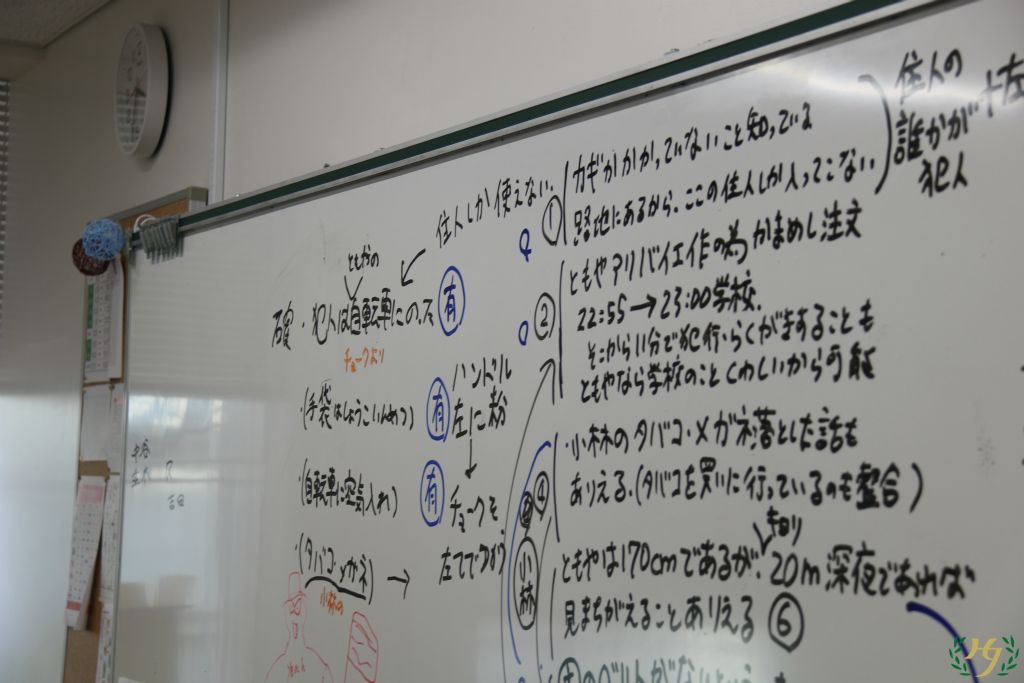 住人の
誰かが
犯人
十左
カギがかかっていないこと知っている
住人しか使えない.
①
路地にあるから、ここの住人しか入ってこない
ともやの
確・犯人は自転車にの
有
チョークより
②
ともやアリバイ工作の為かまめし注文
22:55→23:00学校.
そこから11分で犯行・らくがきすることも
ともやなら学校のことくわしいから可能
(手袋はしょうこいんめつ)
有
ハンドル
左に粉
(自転車に空気入れ)
有
チョークを
左手で
④
・小林のタバコ・メガネ落とした話も
ありえる.(タバコを買いに行っているのも整合)
・(タバコ・メガネ)→
小林の
小林
ともやは170cmであるが、20m深夜であれば
見まちがえることありえる⑥
のベルトがない
HJ